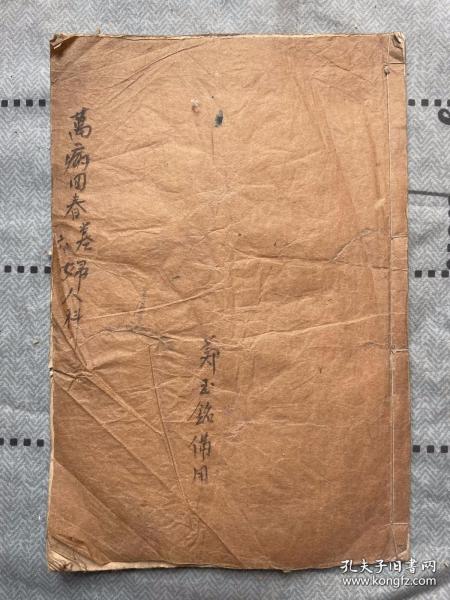 萬病回春卷六婦人科
鄭玉銘備用
孔夫子旧书网
www.kongfz.com